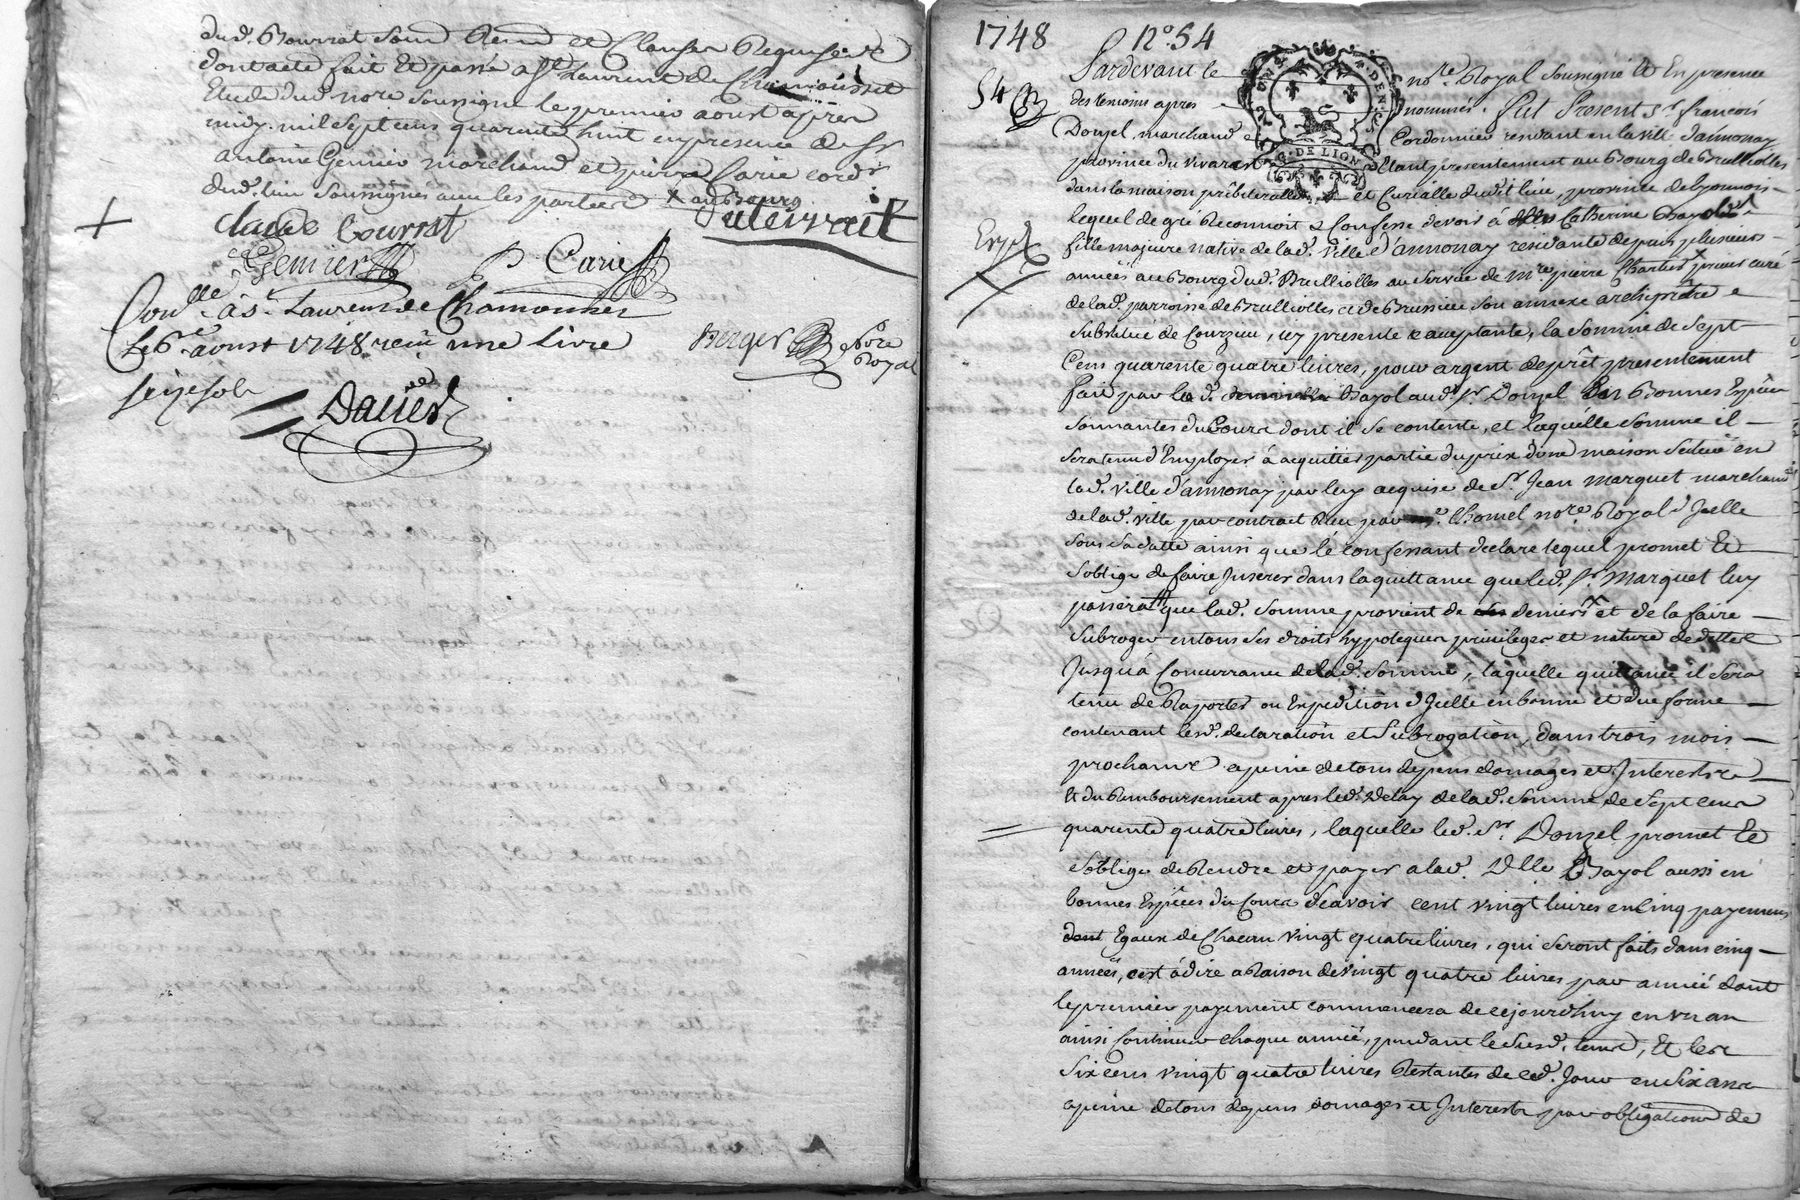 dud. Bourrat sous Renon et Clauses Requises &
dont acte fait Et passé a St Laurent de Chamousset
Etude dud nore Soussigné le premier aoust après
midy. mil sept cens quarente huit en presence de Sr
antoine Gemier marchand et pierre Carie cordr
dud. lieu Soussignés avec les parties x au Bourg
claude bourrat
Duteivrait
Gemier
P Carie
Conlle à St Laurens de Chamousset
Le 6e aoust 1748 recu une livre
seize sols
Berger nore
Royal
Dacier
1748 No 54
54
Pardevant le nore Royal Soussigné Et En presence
des temoins apres nommés. fut Present Sr. françois
Donzel, marchand Cordonnier residant en la ville d'annonay
province du vivarest Etant presentement au Bourg de Brullioles
dans la maison presbiteralle et Curialle dudit lieu, province de lyonnois
lequel de gré Reconnoit & Confesse devoir à Catherine Bayol
Exp.
fille majeure native de lad. ville d'annonay residante depuis plusieurs
années au Bourg dud. Brulliolles au service de Mre pierre Chartier prieur curé
de lad. parroisse de Brulliolles et de Brussieu son annexe archiprêtre
Substitué de Courzieu, icy presente & acceptante, la Somme de Sept
Cens quarente quatre livres, pour argent de prêt presentement
fait par lad. demoiselle Bayol aud. Sr Donzel En Bonnes Espèces
Sonnantes du Cours dont il se contente, et laquelle Somme il
sera tenu d'Employer à acquitter partie du prix d'une maison scituée en
lad. ville d'annonay par luy acquise de Sr. Jean Marquet marchand
de lad. ville par contract Reçu par me. Chomel nore Royal d'Icelle
Sous Sa datte ainsi que le confessant declare lequel promet Et
S'oblige de faire Inserer dans la quittance que led. Sr Marquet luy
passera que lad. Somme provient de deniers et de la faire
Subroger en tous Ses droits hypoteques privileges et nature de dettes
Jusqu'à Concurrance de lad. Somme, laquelle quittance il Sera
tenu de Raporter ou Expedition d'Icelle en bonne et due forme
contenant lesd. declaration et Subrogation, dans trois mois
prochains a peine de tous depens domages et Interests &
Et du Remboursement apres led. Delay de lad. Somme de Sept cens
quarente quatre livres, laquelle led. Sr Donzel promet Et
s'oblige de Rendre et payer a lad. Dlle Bayol aussi en
bonnes Espèces du Cours scavoir cent vingt livres en Cinq payemens
dont Egaux de Chacun vingt quatre livres, qui Seront faits dans cinq
années, c'est à dire a Raison de vingt quatre livres par année dont
le premier payement commencera de ce jourdhuy en un an
ainsi Continuer chaque année, pendant le Susd. tems, Et les
Six cens vingt quatre livres Restantes de ced. Jour en Six ans
a peine de tous depens domages et Interests par obligations de